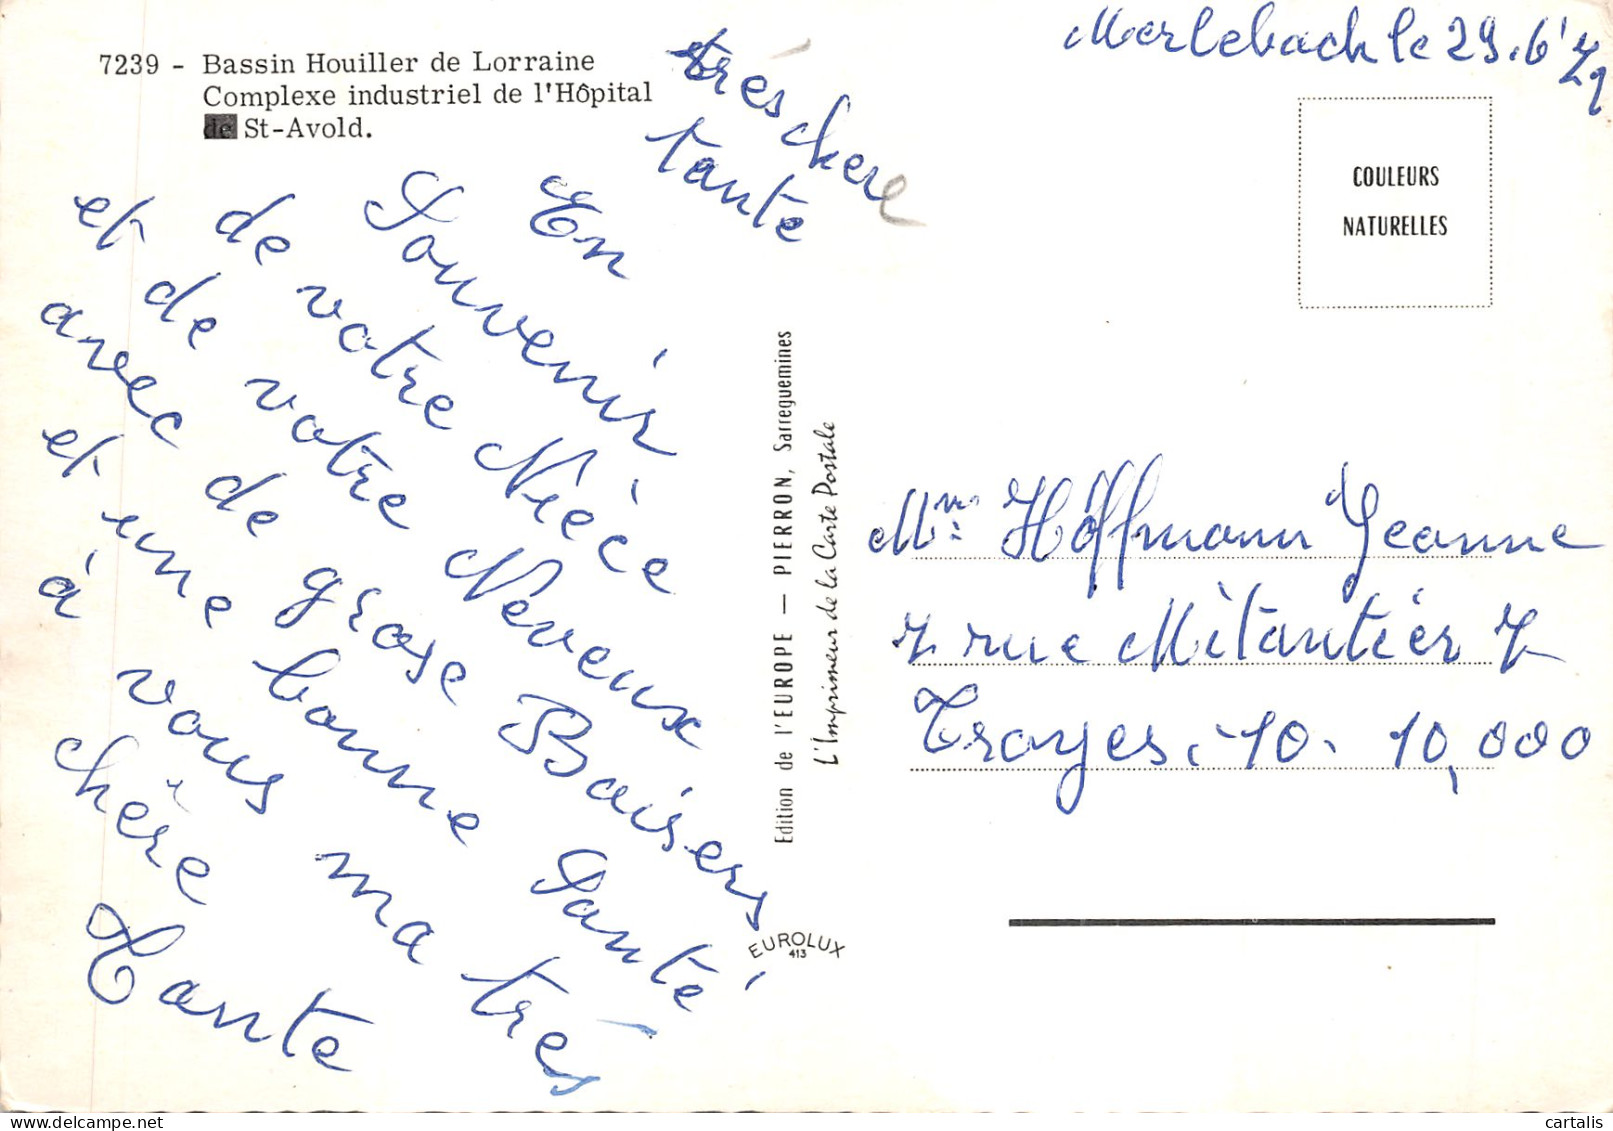 Merlebach le 29.6'79
7239 - Bassin Houiller de Lorraine
Complexe industriel de l'Hôpital
de St-Avold.
très chere
tante
En
Souvenir
de votre Nièce
et de votre Neveux
avec de grose Baisers
et une bonne Santé
à vous ma très
chère
Tante
Edition de l'EUROPE — PIERRON, Sarreguemines
L'Imprimeur de la Carte Postale
EUROLUX
413
COULEURS
NATURELLES
Mm: Hoffmann Jeanne
7 rue Mitantièr 7
Troyes. -10. 10,000
cartalis